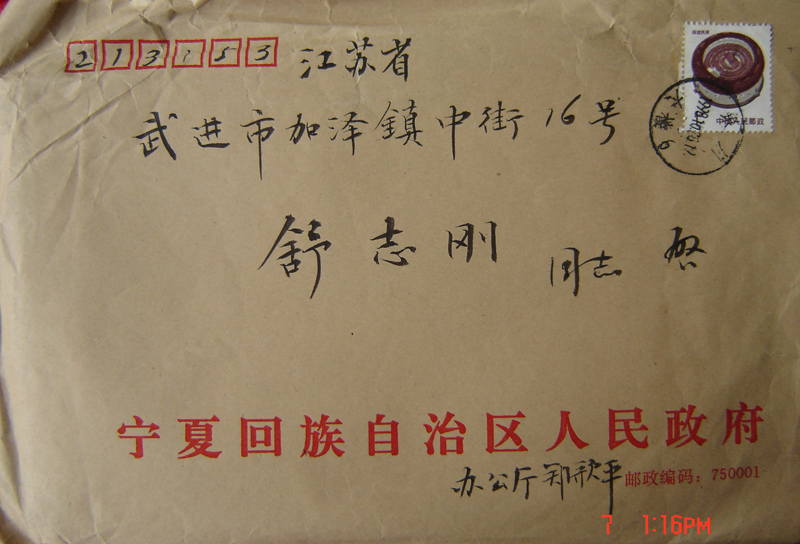 213153 江苏省
武进市加泽镇中街16号
舒志刚 同志 启
中国人民邮政
宁夏回族自治区人民政府
办公厅 郑歌平 邮政编码：750001
7 1:16PM